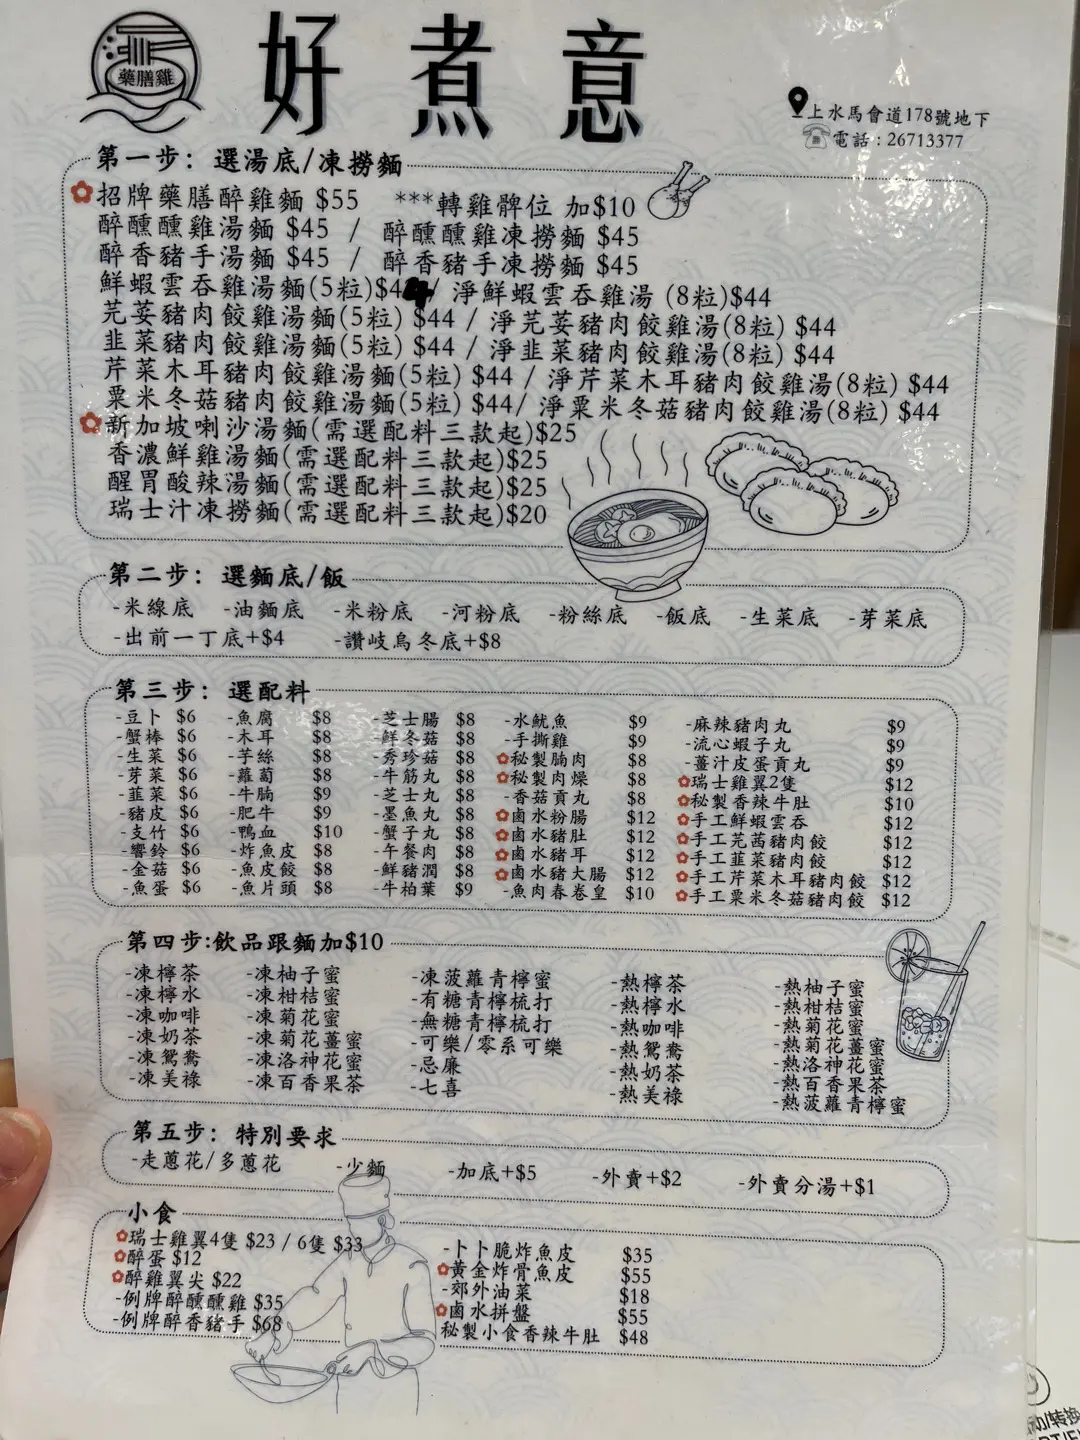 藥膳雞
好煮意
上水馬會道178號地下
電話：26713377
第一步：選湯底/凍撈麵
招牌藥膳醉雞麵 $55 ***轉雞髀位 加$10
醉醺醺雞湯麵 $45 / 醉醺醺雞凍撈麵 $45
醉香豬手湯麵 $45 / 醉香豬手凍撈麵 $45
鮮蝦雲吞雞湯麵(5粒)$44 / 淨鮮蝦雲吞雞湯 (8粒)$44
芫荽豬肉餃雞湯麵(5粒) $44 / 淨芫荽豬肉餃雞湯(8粒) $44
韭菜豬肉餃雞湯麵(5粒) $44 / 淨韭菜豬肉餃雞湯(8粒) $44
芹菜木耳豬肉餃雞湯麵(5粒) $44 / 淨芹菜木耳豬肉餃雞湯(8粒) $44
粟米冬菇豬肉餃雞湯麵(5粒) $44/ 淨粟米冬菇豬肉餃雞湯(8粒) $44
新加坡喇沙湯麵(需選配料三款起)$25
香濃鮮雞湯麵(需選配料三款起)$25
醒胃酸辣湯麵(需選配料三款起)$25
瑞士汁凍撈麵(需選配料三款起)$20
第二步：選麵底/飯
-米線底 -油麵底 -米粉底 -河粉底 -粉絲底 -飯底 -生菜底 -芽菜底
-出前一丁底+$4 -讚岐烏冬底+$8
第三步：選配料
-豆卜 $6
-蟹棒 $6
-生菜 $6
-芽菜 $6
-韮菜 $6
-豬皮 $6
-支竹 $6
-響鈴 $6
-金菇 $6
-魚蛋 $6
-魚腐 $8
-木耳 $8
-芋絲 $8
-蘿蔔 $8
-牛腩 $9
-肥牛 $9
-鴨血 $10
-炸魚皮 $8
-魚皮餃 $8
-魚片頭 $8
-芝士腸 $8
-鮮冬菇 $8
-秀珍菇 $8
-牛筋丸 $8
-芝士丸 $8
-墨魚丸 $8
-蟹子丸 $8
-午餐肉 $8
-鮮豬潤 $8
-牛柏葉 $9
-水魷魚 $9
-手撕雞 $9
秘製腩肉 $8
秘製肉燥 $8
-香菇貢丸 $8
鹵水粉腸 $12
鹵水豬肚 $12
鹵水豬耳 $12
鹵水豬大腸 $12
-魚肉春卷皇 $10
-麻辣豬肉丸 $9
-流心蝦子丸 $9
-薑汁皮蛋貢丸 $9
瑞士雞翼2隻 $12
秘製香辣牛肚 $10
手工鮮蝦雲吞 $12
手工芫茜豬肉餃 $12
手工韮菜豬肉餃 $12
手工芹菜木耳豬肉餃 $12
手工粟米冬菇豬肉餃 $12
第四步:飲品跟麵加$10
-凍檸茶
-凍檸水
-凍咖啡
-凍奶茶
-凍鴛鴦
-凍美祿
-凍柚子蜜
-凍柑桔蜜
-凍菊花蜜
-凍菊花薑蜜
-凍洛神花蜜
-凍百香果茶
-凍菠蘿青檸蜜
-有糖青檸梳打
-無糖青檸梳打
-可樂/零系可樂
-忌廉
-七喜
-熱檸茶
-熱檸水
-熱咖啡
-熱鴛鴦
-熱奶茶
-熱美祿
-熱柚子蜜
-熱柑桔蜜
-熱菊花蜜
-熱菊花薑蜜
-熱洛神花蜜
-熱百香果茶
-熱菠蘿青檸蜜
第五步：特別要求
-走蔥花/多蔥花 -少麵 -加底+$5 -外賣+$2 -外賣分湯+$1
小食
瑞士雞翼4隻 $23 / 6隻 $33
醉蛋 $12
醉雞翼尖 $22
-例牌醉醺醺雞 $35
-例牌醉香豬手 $68
-卜卜脆炸魚皮 $35
黃金炸骨魚皮 $55
-郊外油菜 $18
鹵水拼盤 $55
秘製小食香辣牛肚 $48
/转换